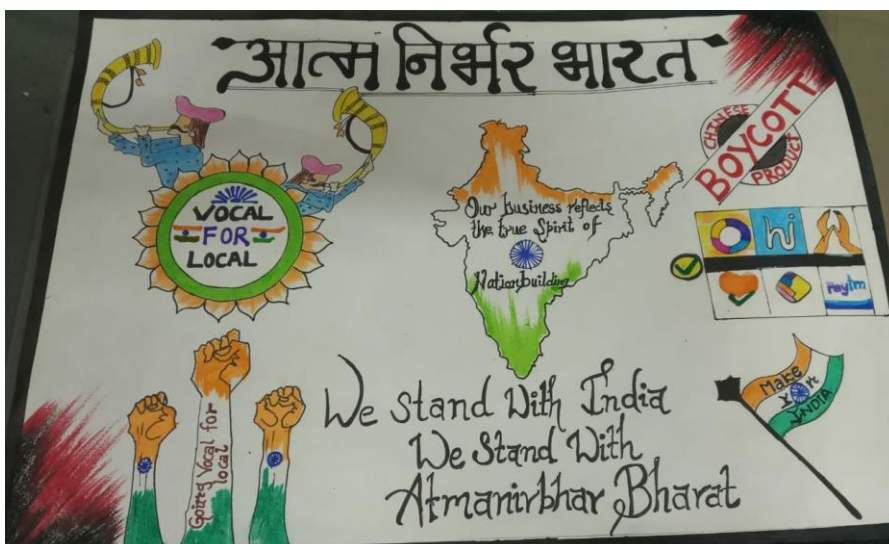 आत्म निर्भर भारत
VOCAL
FOR
LOCAL
Our business reflects
the true Spirit of
Nationbuilding
CHINESE
BOYCOTT
PRODUCT
hi
paytm
Going Vocal for
local
We Stand With India
We Stand With
Atmanirbhar Bharat
Make
In
INDIA